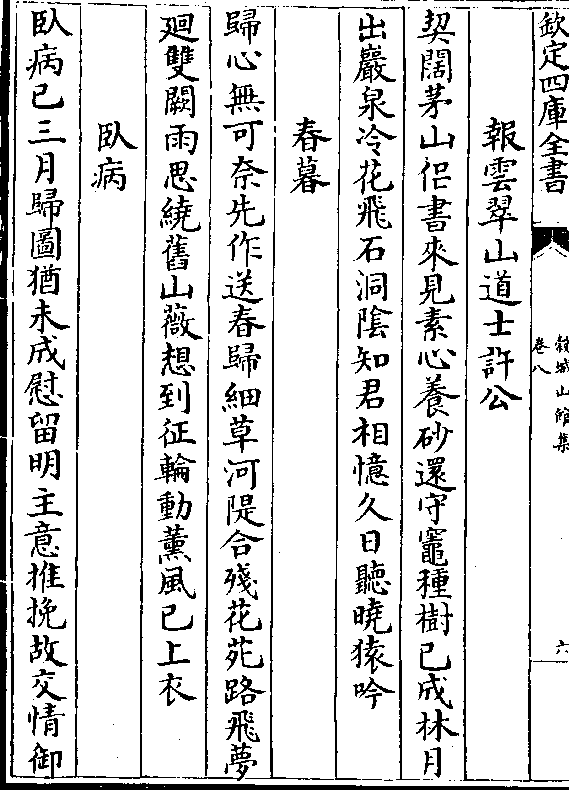 欽定四庫全書
穀城山館集
卷八
六
報雲翠山道士許公
契闊茅山侶書來見素心養砂還守竈種樹已成林月
出巖泉冷花飛石洞陰知君相憶久日聽曉猿吟
春暮
歸心無可奈先作送春歸細草河隄合殘花苑路飛夢
廻雙闕雨思繞舊山薇想到征輪動薫風已上衣
臥病
臥病已三月歸圖猶未成慰留明主意推挽故交情御